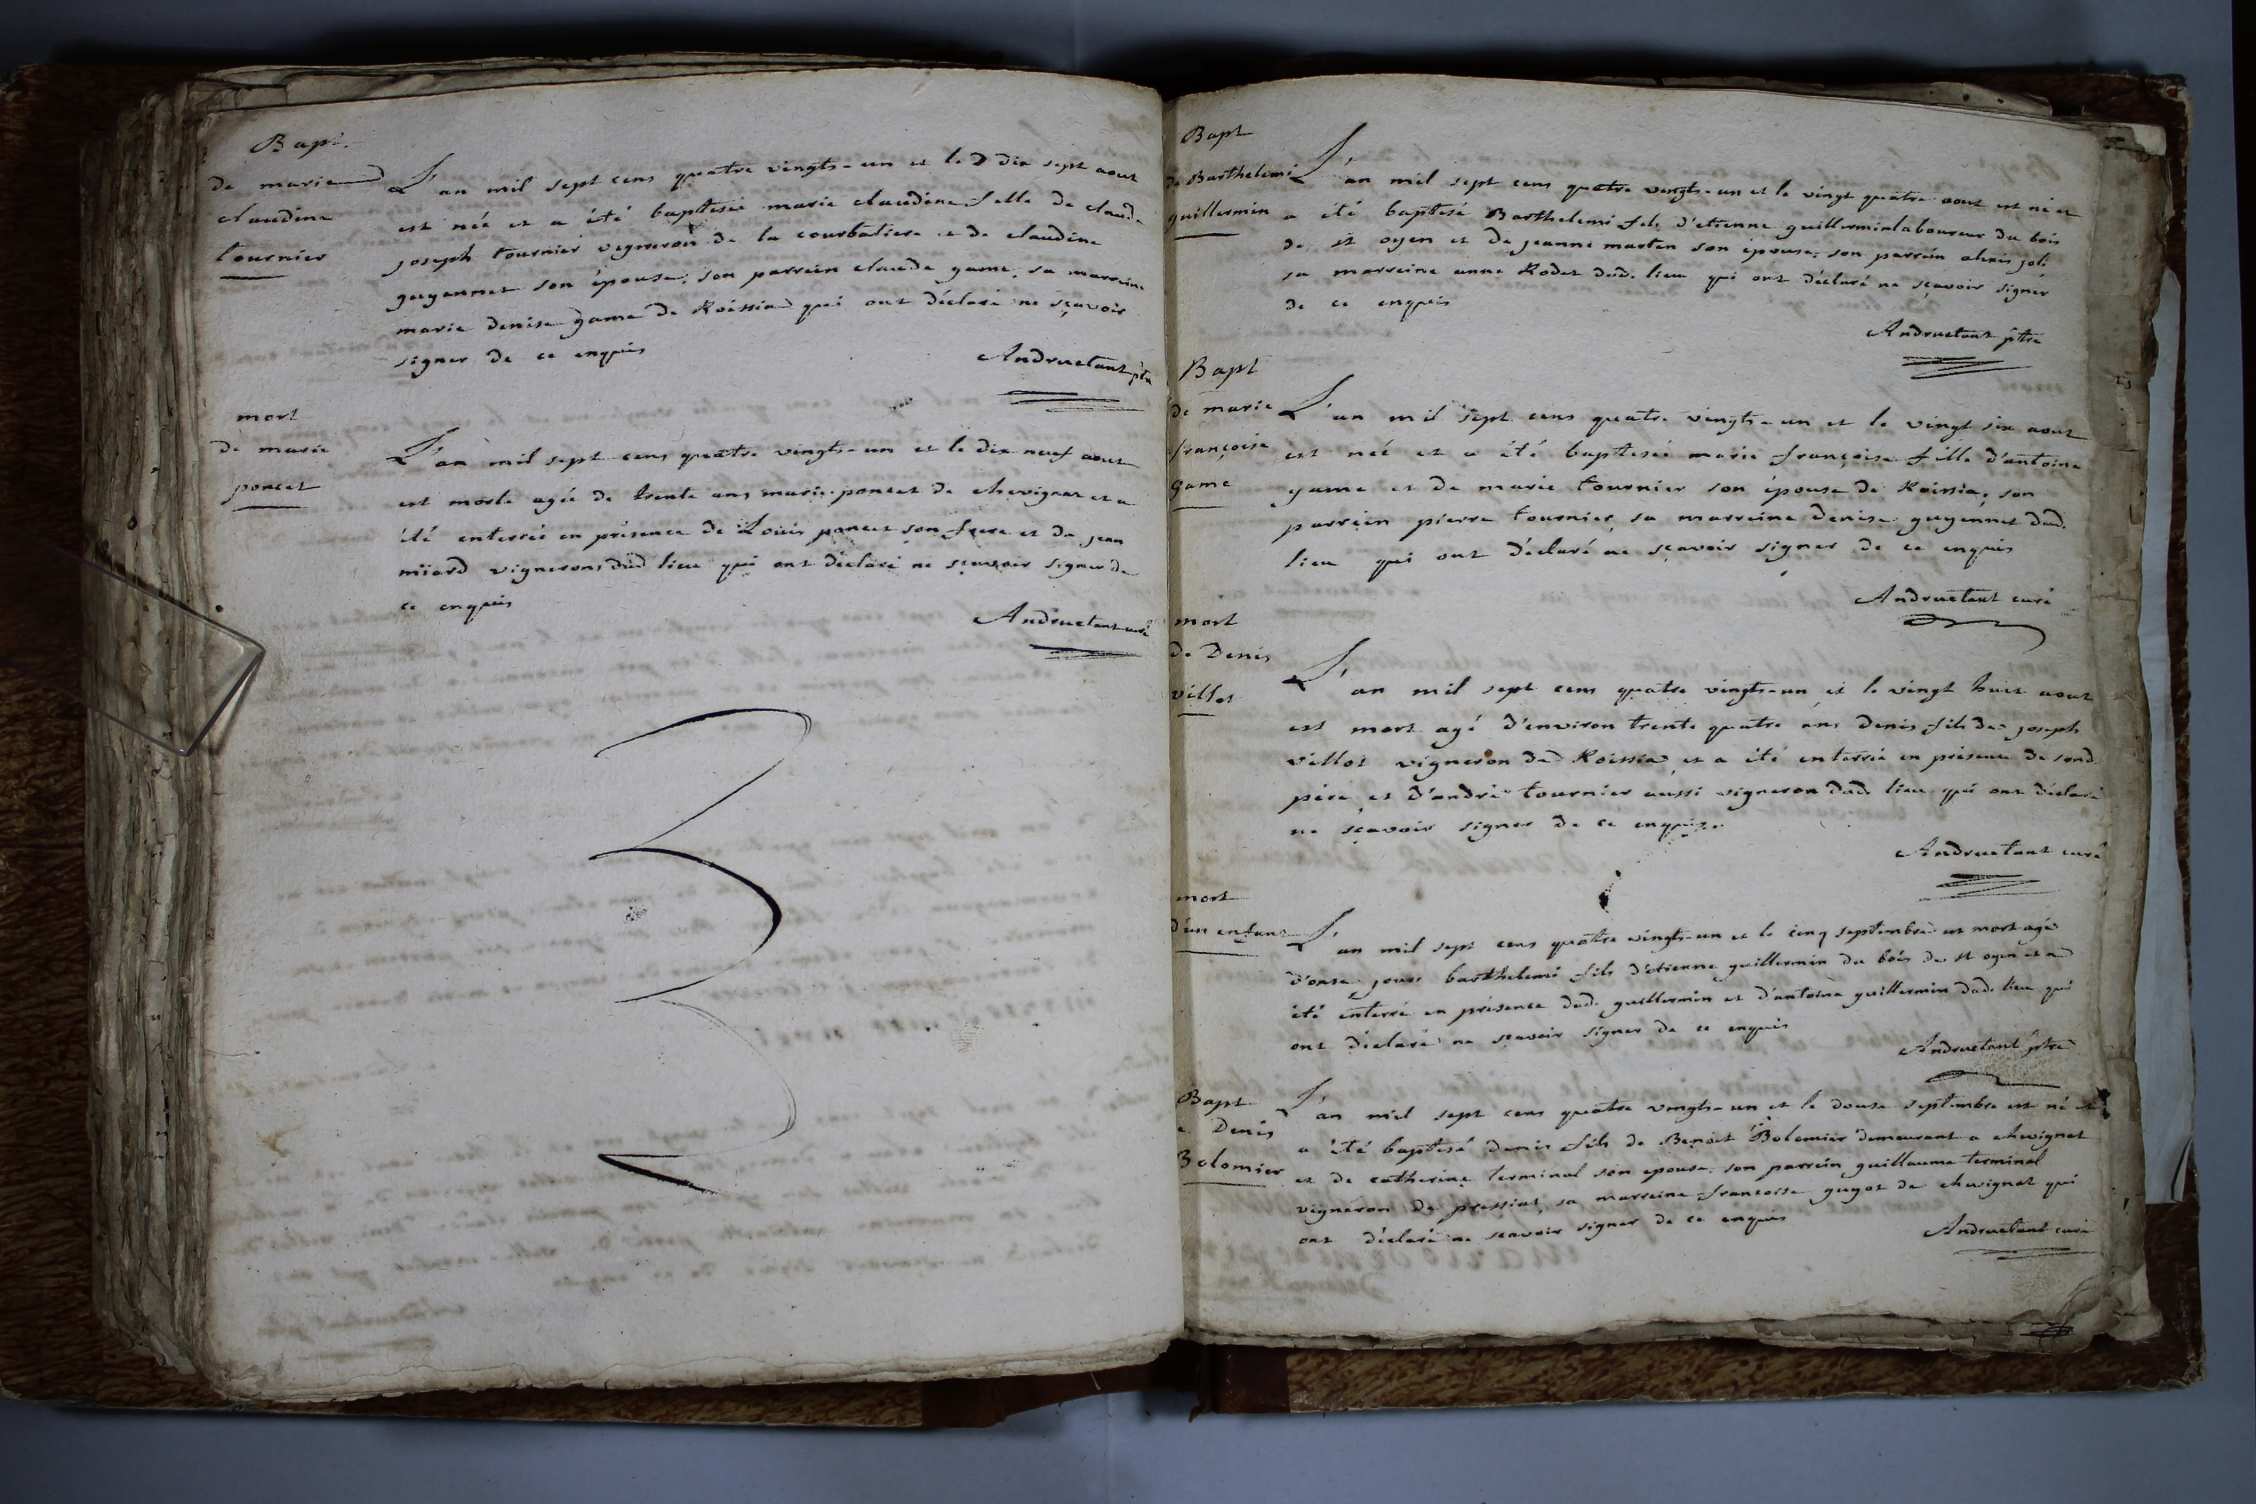 Bapt.
de marie
claudine
tournier
L'an mil sept cens quatre vingts-un et le dix sept aout
est née et a été baptisée marie claudine fille de claude
joseph tournier vigneron de la courbatiere e de claudine
guyennet son épouse, son parrein claude game, sa marreine
marie denise game de Roissia qui ont déclaré ne sçavoir
signer de ce enquis
Andruetant ptre
mort
de marie
poncet
L'an mil sept cens quatre vingts-un et le dix neuf aout
est morte agée de trente ans marie poncet de chevignat et a
été enterrée en présence de Louis poncet son frere et de jean
miard vignerons dud lieu qui ont déclaré ne sçavoir signer de
ce enquis
Andruetant curé
Bapt
de Barthelemi
guillermin
L'an mil sept cens quatre vingts-un et le vingt quatre aout est né et
a été baptisé Barthelemi fils d'etienne guillermin laboureur du bois
de st oyen et de jeanne marten son épouse, son parrein alexis joli
sa marreine anne Rodet dud. lieu qui ont déclaré ne sçavoir signer
de ce enquis
Andruetant ptre
Bapt
de marie
françoise
game
L'an mil sept cens quatre vingts-un et le vingt six aout
est née et a été baptisée marie françoise fille d'antoine
game et de marie tournier son épouse de Roissia, son
parrein pierre tournier, sa marreine denise guyennet dud.
lieu qui ont déclaré ne sçavoir signer de ce enquis
Andruetant curé
mort
de Denis
villot
L'an mil sept cens quatre vingts-un et le vingt huit aout
est mort agé d'environ trente quatre ans denis fils de joseph
villot vigneron de Roissia et a été enterré en présence de sond.
père et d'andré tournier aussi vigneron dud. lieu qui ont déclaré
ne sçavoir signer de ce enquis.
Andruetant curé
mort
d'un enfant
L'an mil sept cens quatre vingts-un et le cinq septembre est mort agé
d'onze jours barthelemi fils d'etienne guillermin du bois de st oyen et a
été enterré en présence dud. guillermin et d'antoine guillermin dud. lieu qui
ont déclaré ne sçavoir signer de ce enquis
Andruetant ptre
Bapt
e Denis
Bolomier
L'an mil sept cens quatre vingts-un et le douze septembre est né et
a été baptisé denis fils de Benoit Bolomier demeurant a chevignat
et de catherine terminal son epouse, son parrein guillaume terminal
vigneron de pressiat, sa marreine francoise guyot de chevignat qui
ont déclaré ne sçavoir signer de ce enquis
Andruetant curé